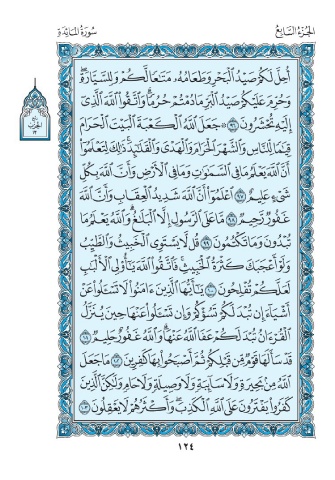 الجزء السابع
سورة المائدة
أُحِلَّ لَكُمْ صَيْدُ الْبَحْرِ وَطَعَامُهُ مَتَاعًا لَّكُمْ وَلِلسَّيَّارَةِ ۖ
وَحُرِّمَ عَلَيْكُمْ صَيْدُ الْبَرِّ مَا دُمْتُمْ حُرُمًا ۗ وَاتَّقُوا اللَّهَ الَّذِي
إِلَيْهِ تُحْشَرُونَ ٩٦ ۞ جَعَلَ اللَّهُ الْكَعْبَةَ الْبَيْتَ الْحَرَامَ
قِيَامًا لِّلنَّاسِ وَالشَّهْرَ الْحَرَامَ وَالْهَدْيَ وَالْقَلَائِدَ ۚ ذَٰلِكَ لِتَعْلَمُوا
أَنَّ اللَّهَ يَعْلَمُ مَا فِي السَّمَاوَاتِ وَمَا فِي الْأَرْضِ وَأَنَّ اللَّهَ بِكُلِّ
شَيْءٍ عَلِيمٌ ٩٧ اعْلَمُوا أَنَّ اللَّهَ شَدِيدُ الْعِقَابِ وَأَنَّ اللَّهَ
غَفُورٌ رَّحِيمٌ ٩٨ مَّا عَلَى الرَّسُولِ إِلَّا الْبَلَاغُ ۗ وَاللَّهُ يَعْلَمُ مَا
تُبْدُونَ وَمَا تَكْتُمُونَ ٩٩ قُل لَّا يَسْتَوِي الْخَبِيثُ وَالطَّيِّبُ
وَلَوْ أَعْجَبَكَ كَثْرَةُ الْخَبِيثِ ۚ فَاتَّقُوا اللَّهَ يَا أُولِي الْأَلْبَابِ
لَعَلَّكُمْ تُفْلِحُونَ ١٠٠ يَا أَيُّهَا الَّذِينَ آمَنُوا لَا تَسْأَلُوا عَنْ
أَشْيَاءَ إِن تُبْدَ لَكُمْ تَسُؤْكُمْ وَإِن تَسْأَلُوا عَنْهَا حِينَ يُنَزَّلُ
الْقُرْآنُ تُبْدَ لَكُمْ عَفَا اللَّهُ عَنْهَا ۗ وَاللَّهُ غَفُورٌ حَلِيمٌ ١٠١
قَدْ سَأَلَهَا قَوْمٌ مِّن قَبْلِكُمْ ثُمَّ أَصْبَحُوا بِهَا كَافِرِينَ ١٠٢ مَا جَعَلَ
اللَّهُ مِن بَحِيرَةٍ وَلَا سَائِبَةٍ وَلَا وَصِيلَةٍ وَلَا حَامٍ ۙ وَلَٰكِنَّ الَّذِينَ
كَفَرُوا يَفْتَرُونَ عَلَى اللَّهِ الْكَذِبَ ۖ وَأَكْثَرُهُمْ لَا يَعْقِلُونَ ١٠٣
١٢٤